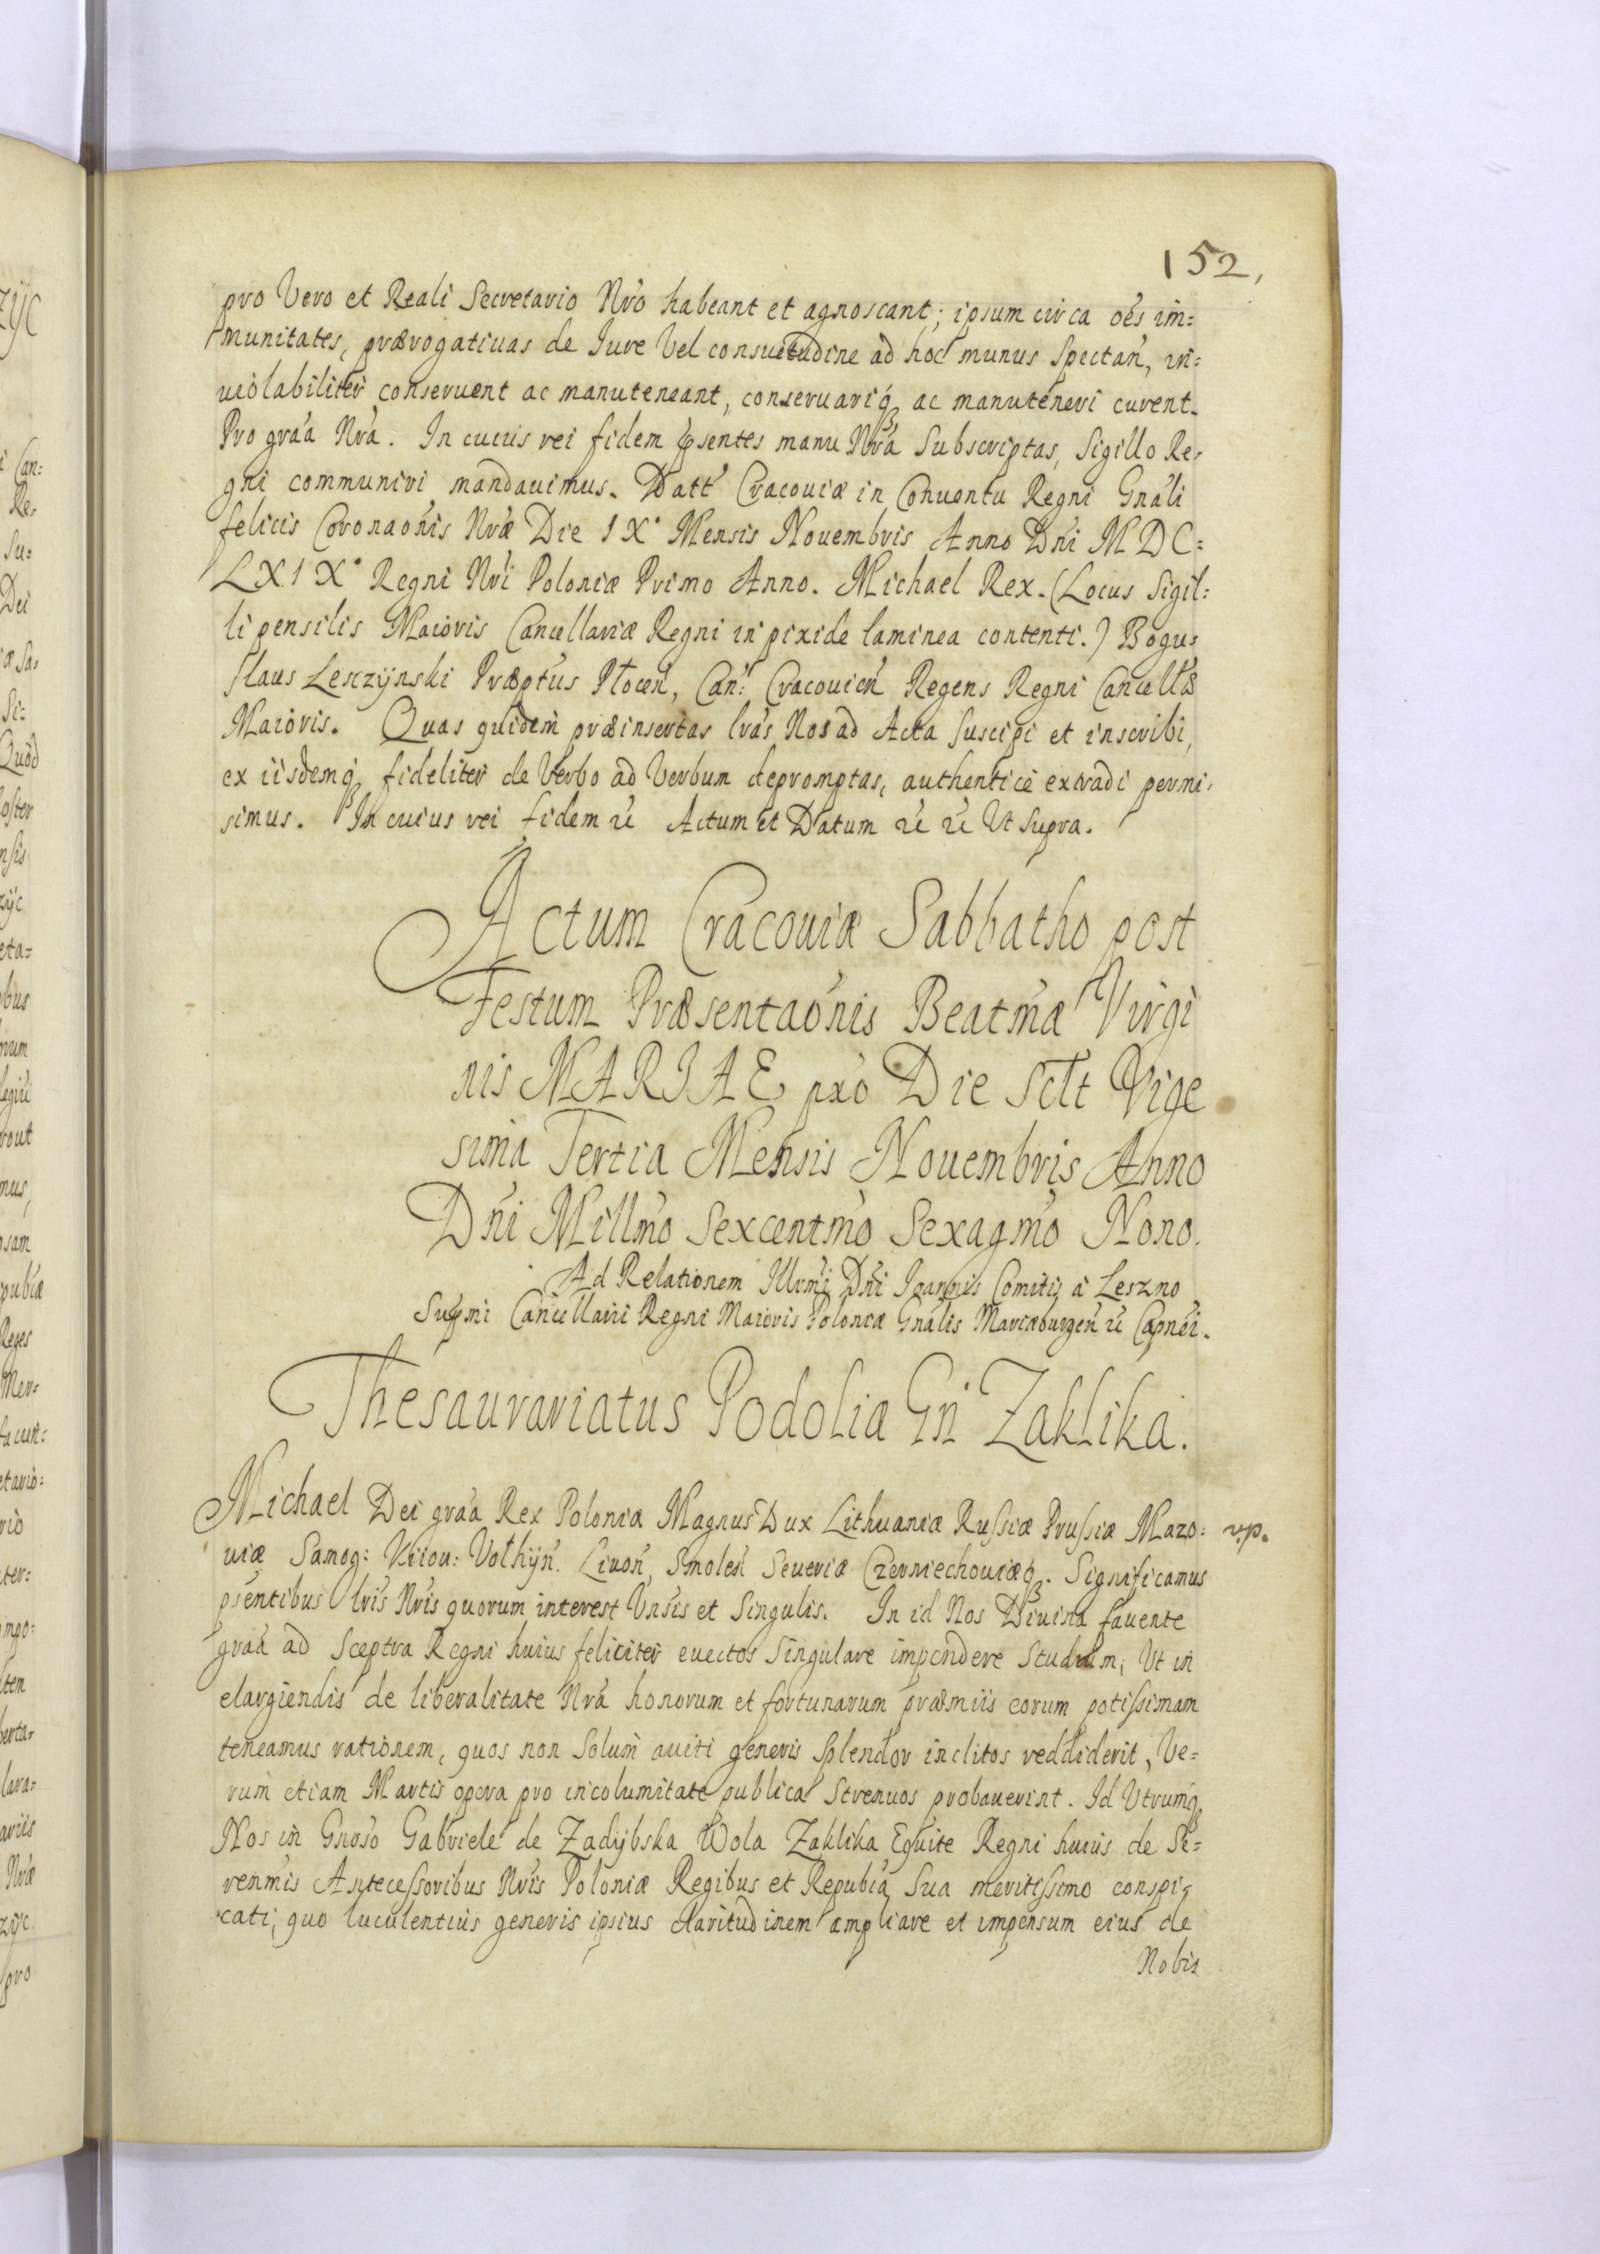 152,
pro Vero et Reali Secretario Nro habeant et agnoscant; ipsum circa oes im:
munitates, prærogatiuas de Iure Vel consuetudine ad hoc munus Spectan, in:
uiolabiliter conseruent ac manuteneant, conseruariq ac manuteneri curent.
Pro graa Nra. In cuius rei fidem psentes manu Nra Subscriptas, Sigillo Re:
gni communiri mandauimus. Datt Cracouiæ in Conuentu Regni Gnali
felicis Coronaonis Nræ Die IX° Mensis Nouembris Anno Dni MDC=
LXIX° Regni Nri Poloniæ Primo Anno. Michael Rex. (Locus Sigil:
li pensilis Maioris Cancellariæ Regni in pixide laminea contenti.) Bogu:
slaus Leszÿnski Præptus Plocen, Can: Cracouien Regens Regni Cancellæ
Maioris. Quas quidem præinsertas lras Nos ad Acta Suscipi et inscribi,
ex iisdemq fideliter de Verbo ad Verbum depromptas, authentice extradi permi:
simus. In cuius rei fidem &c Actum et Datum &c &c Vt Supra.
Actum Cracouiæ Sabbatho post
Festum Præsentaonis Beatmæ Virgi
nis MARIAE pro Die Sclt Vige
sima Tertia Mensis Nouembris Anno
Dni Millmo Sexcentmo Sexagmo Nono.
Ad Relationem Illrmi Dni Ioannis Comitis à Leszno
Supmi Cancellarii Regni Maioris Poloniæ Gnalis Mariæburgen &c Capnei.
Thesaurariatus Podoliæ Gn Zaklika.
Michael Dei graa Rex Poloniæ Magnus Dux Lithuaniæ Russiæ Prussiæ Mazo: vp.
uiæ Samog: Kiiou: Volhÿn. Liuon, Smolen Seueriæ Czerniechouiæq. Significamus
psentibus lris Nris quorum interest Vnsis et Singulis. In id Nos Diuina fauente
graa ad Sceptra Regni huius feliciter euectos Singulare impendere Studium; Vt in
elargiendis de liberalitate Nra honorum et fortunarum præmiis eorum potissimam
teneamus rationem, quos non Solum auiti generis Splendor inclitos reddiderit, Ve=
rum etiam Martis opera pro incolumitate publica Strenuos probauerint. Id Vtrumq
Nos in Gnoso Gabriele de Zadÿbska Wola Zaklika Equite Regni huius de Se=
renmis Antecessoribus Nris Poloniæ Regibus et Repubia Sua meritissimo conspi:
cati, quo luculentius generis ipsius claritudinem ampliare et impensum eius de
Nobis